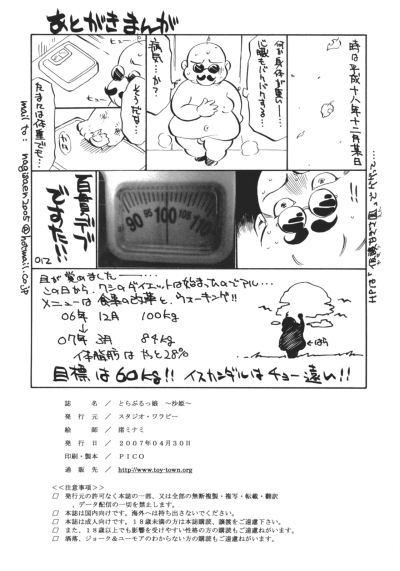 あとがきまんが
時は平成十八年十二月某日
何か身体が重い…
心臓もバクバクする…
病気…か？
ヒュー
ヒュー
そうだな…
たまには体重でも…
90 95 100 110
百貫デブ
ですた!!
mail to: nagaoex2005@hotmail.co.jp
目が覚めました━…
この日から、ワシのダイエットは始まったのでアル…
メニューは食事の改革と、ウォーキング!!
06年 12月 100kg
↓
07年 3月 84kg
体脂肪はやっと28%
目標は60kg!! イスカンダルはチョー遠い!!
誌　名 ／ とらぶるっ娘 ～沙姫～
発 行 元 ／ スタジオ・ワラビー
絵　師 ／ 渚ミナミ
発 行 日 ／ 2007年04月30日
印刷・製本 ／ PICO
通 販 先 ／ http://www.toy-town.org
<<注意事項>>
□ 発行元の許可なく本誌の一部、又は全部の無断複製・複写・転載・翻訳
、データ配信の一切を禁止します。
□ 本誌は国内向けです。海外へは持ち出さないでください。
□ 本誌は成人向けです。18歳未満の方は本誌購読、譲渡をご遠慮下さい。
□ また、18歳以上でも影響を受けやすい性格の方の購読もご遠慮ねがいます。
□ 洒落、ジョーク＆ユーモアのわからない方の購読もご遠慮ねがいます。